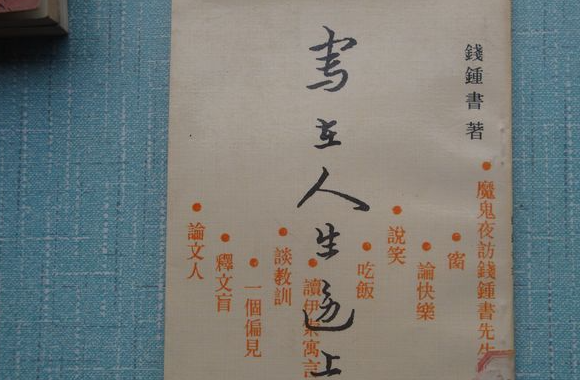 錢鍾書 著
寫在人生邊上
魔鬼夜訪錢鍾書先生
窗
論快樂
說笑
吃飯
讀伊索寓言
談教訓
一個偏見
釋文盲
論文人